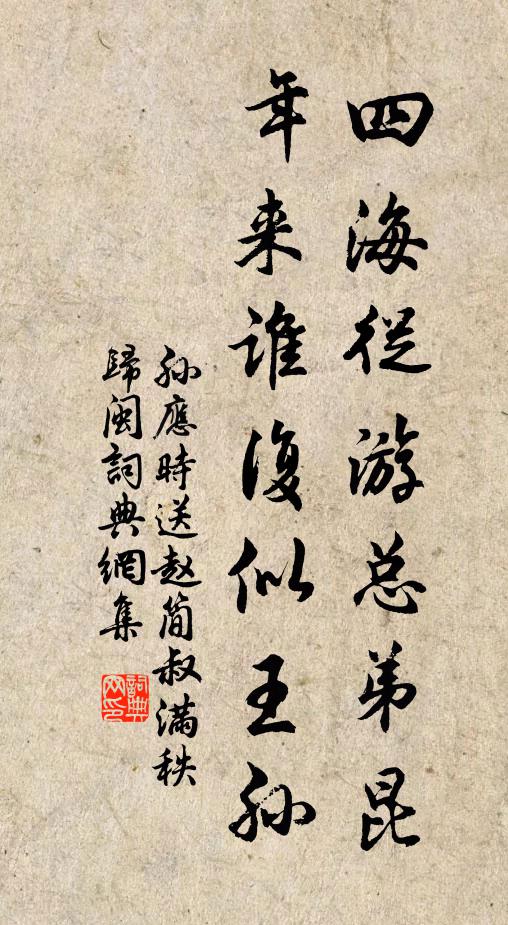 四海従游总弟昆
年来谁復似王孙
孙應時送赵简叔滿秩
歸闽詞典網集
詞典网印